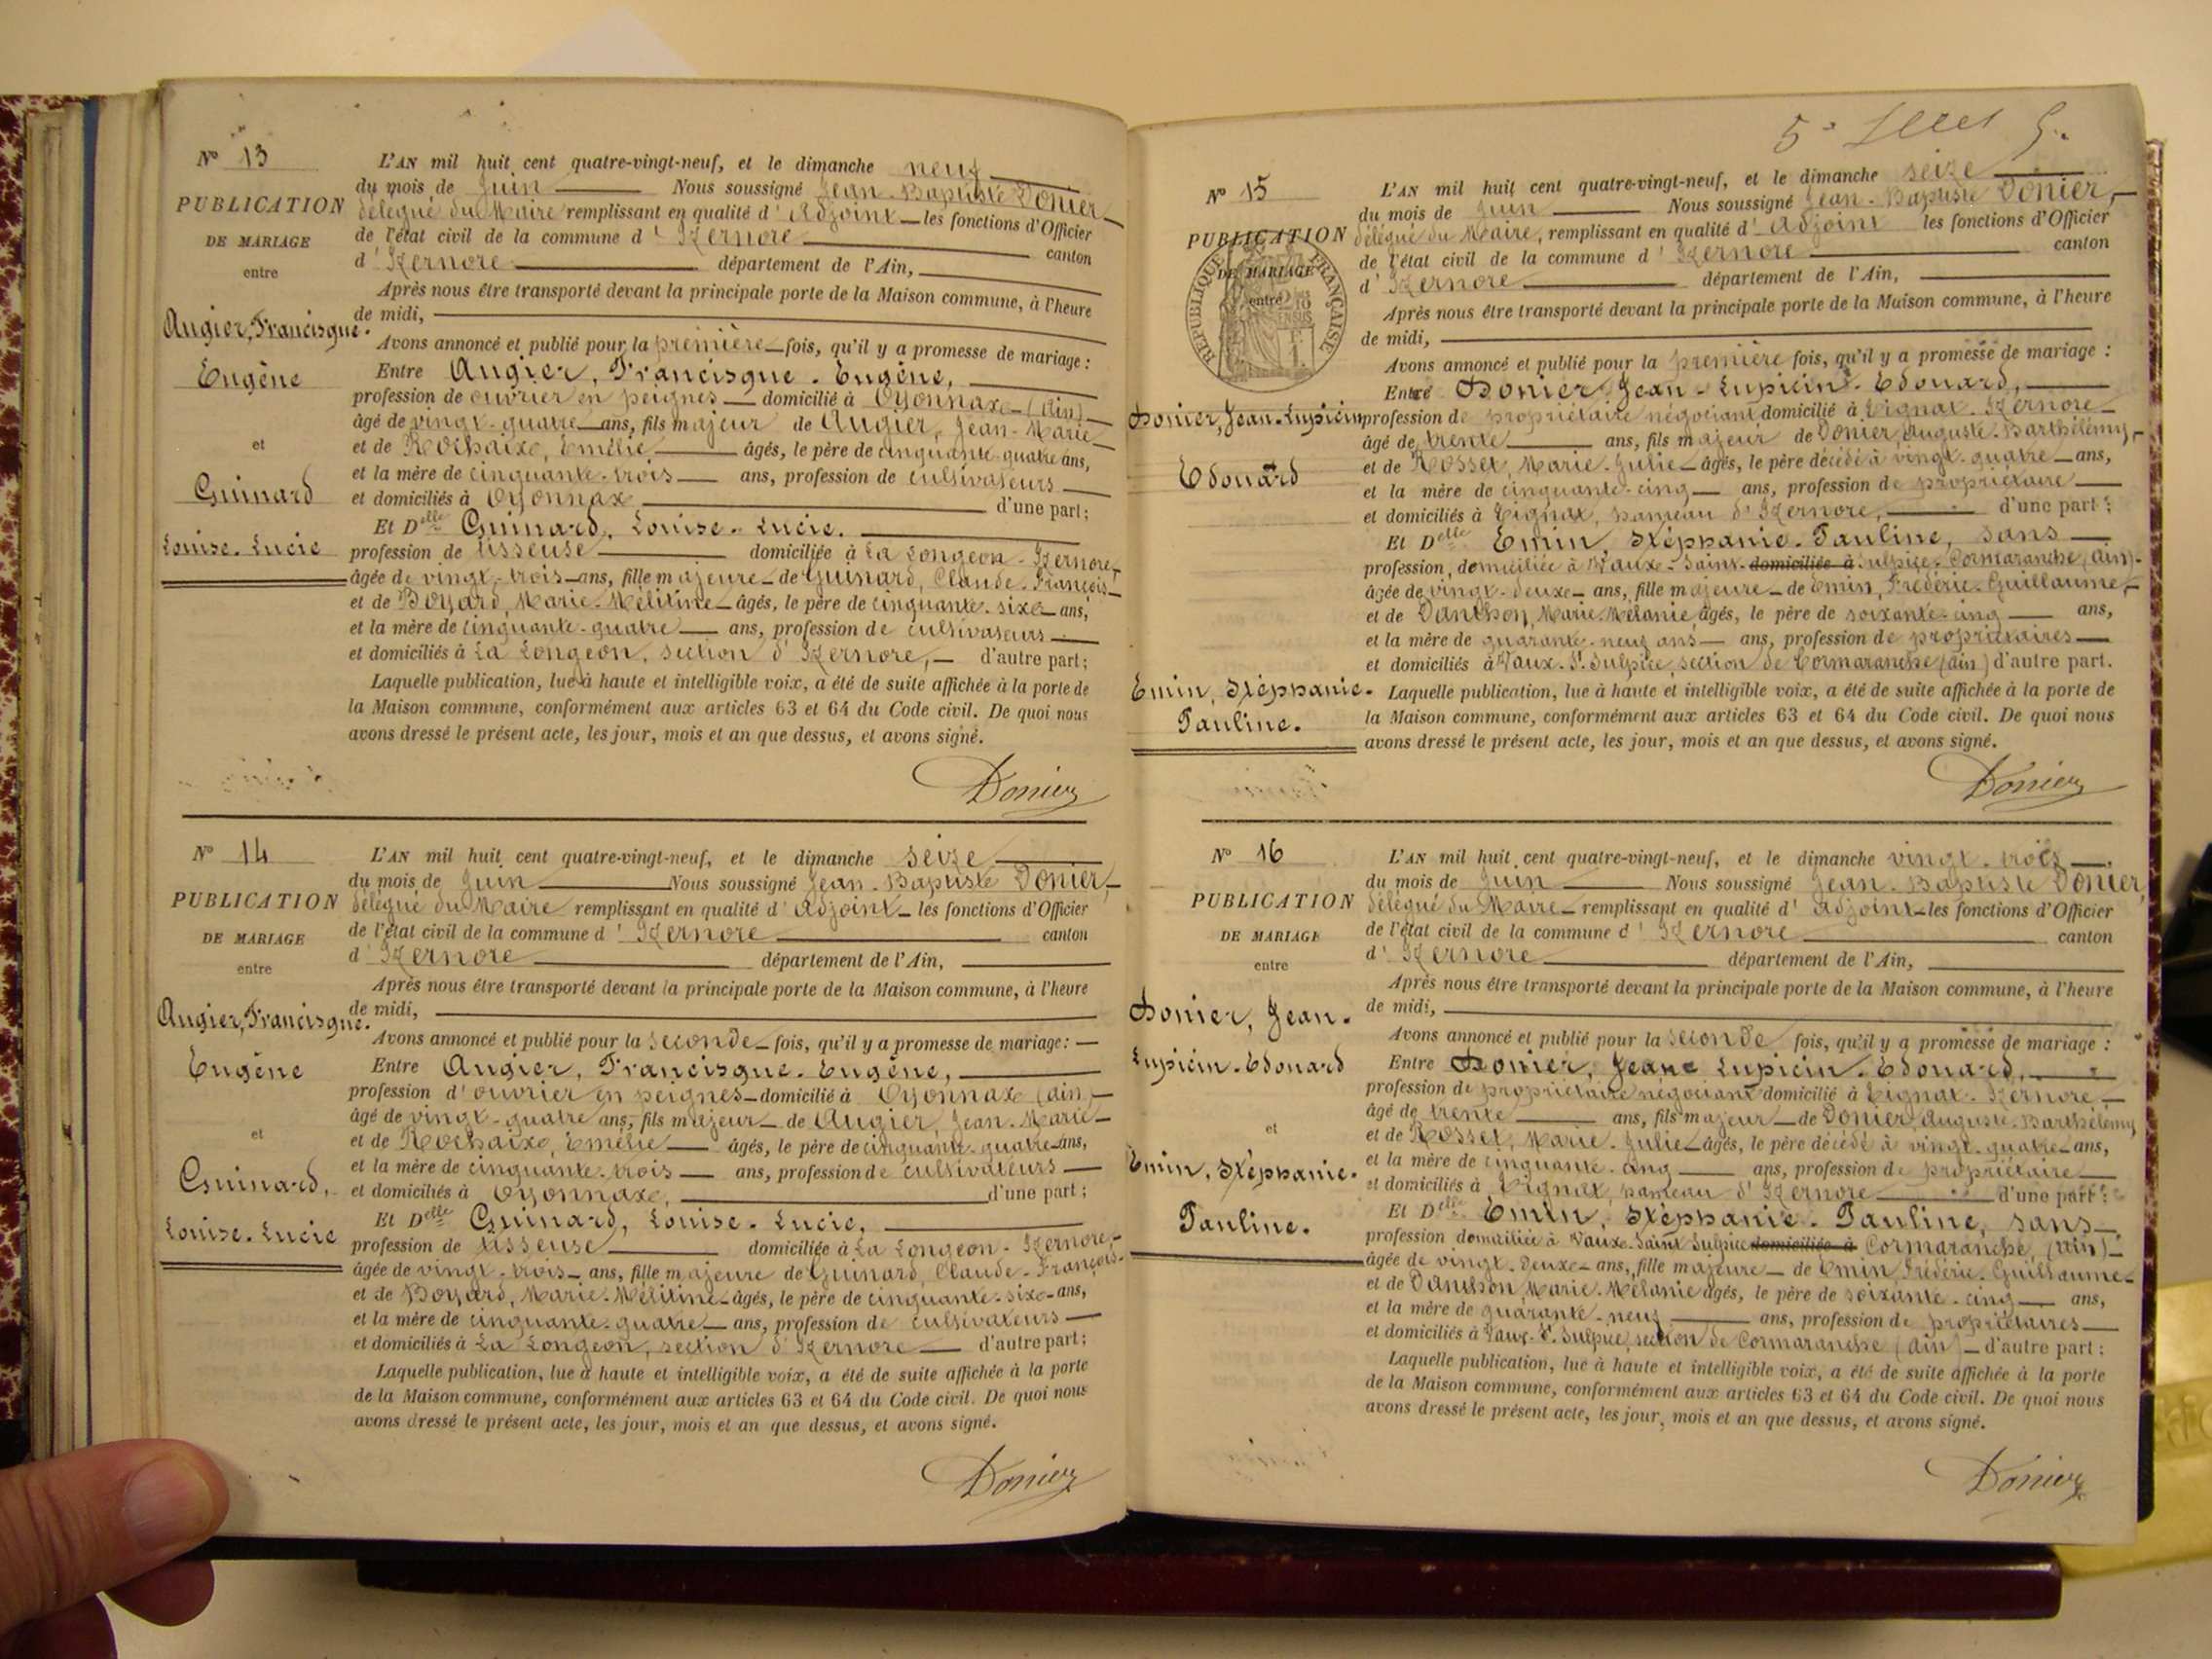 Nº 13
PUBLICATION
DE MARIAGE
entre
Augier, Francisque.
Eugène
et
Guinard
Louise. Lucie
L'AN mil huit cent quatre-vingt-neuf, et le dimanche neuf
du mois de Juin Nous soussigné Jean-Baptiste Donier
délégué du Maire remplissant en qualité d'Adjoint les fonctions d'Officier
de l'état civil de la commune d'Izernore canton
d'Izernore département de l'Ain,
Après nous être transporté devant la principale porte de la Maison commune, à l'heure
de midi,
Avons annoncé et publié pour la première fois, qu'il y a promesse de mariage :
Entre Augier, Francisque. Eugène,
profession de ouvrier en peignes domicilié à Oyonnax (Ain)
âgé de vingt-quatre ans, fils majeur de Augier, Jean-Marie
et de Rochaix, Emélie âgés, le père de cinquante-quatre ans,
et la mère de cinquante-trois ans, profession de cultivateurs
et domiciliés à Oyonnax d'une part ;
Et Delle Guinard, Louise. Lucie.
profession de tisseuse domiciliée à La Longeon - Izernore
âgée de vingt-trois ans, fille majeure de Guinard, Claude-François
et de Boyard, Marie-Mélitine âgés, le père de cinquante-six ans,
et la mère de cinquante-quatre ans, profession de cultivateurs
et domiciliés à La Longeon, section d'Izernore, d'autre part ;
Laquelle publication, lue à haute et intelligible voix, a été de suite affichée à la porte de
la Maison commune, conformément aux articles 63 et 64 du Code civil. De quoi nous
avons dressé le présent acte, les jour, mois et an que dessus, et avons signé.
Donier
Nº 14
PUBLICATION
DE MARIAGE
entre
Augier, Francisque.
Eugène
et
Guinard,
Louise. Lucie
L'AN mil huit cent quatre-vingt-neuf, et le dimanche seize
du mois de Juin Nous soussigné Jean-Baptiste Donier
délégué du Maire remplissant en qualité d'Adjoint les fonctions d'Officier
de l'état civil de la commune d'Izernore canton
d'Izernore département de l'Ain,
Après nous être transporté devant la principale porte de la Maison commune, à l'heure
de midi,
Avons annoncé et publié pour la seconde fois, qu'il y a promesse de mariage :
Entre Augier, Francisque. Eugène,
profession d'ouvrier en peignes domicilié à Oyonnax (Ain)
âgé de vingt-quatre ans, fils majeur de Augier, Jean-Marie
et de Rochaix, Emélie âgés, le père de cinquante-quatre ans,
et la mère de cinquante-trois ans, profession de cultivateurs
et domiciliés à Oyonnax, d'une part ;
Et Delle Guinard, Louise. Lucie,
profession de tisseuse domiciliée à La Longeon - Izernore
âgée de vingt-trois ans, fille majeure de Guinard, Claude-François
et de Boyard, Marie-Mélitine âgés, le père de cinquante-six ans,
et la mère de cinquante-quatre ans, profession de cultivateurs
et domiciliés à La Longeon, section d'Izernore d'autre part ;
Laquelle publication, lue à haute et intelligible voix, a été de suite affichée à la porte
de la Maison commune, conformément aux articles 63 et 64 du Code civil. De quoi nous
avons dressé le présent acte, les jour, mois et an que dessus, et avons signé.
Donier
Nº 15
PUBLICATION
DE MARIAGE
entre
RÉPUBLIQUE FRANÇAISE
Donier, Jean-Lupicin
Edouard
Emin, Stéphanie.
Pauline.
L'AN mil huit cent quatre-vingt-neuf, et le dimanche seize
du mois de Juin Nous soussigné Jean-Baptiste Donier,
délégué du Maire, remplissant en qualité d'Adjoint les fonctions d'Officier
de l'état civil de la commune d'Izernore canton
d'Izernore département de l'Ain,
Après nous être transporté devant la principale porte de la Maison commune, à l'heure
de midi,
Avons annoncé et publié pour la première fois, qu'il y a promesse de mariage :
Entre Donier, Jean-Lupicin-Edouard,
profession de propriétaire négociant domicilié à Tignat-Izernore
âgé de trente ans, fils majeur de Donier, Auguste-Barthélémy
et de Rosset, Marie-Julie âgés, le père décédé à vingt-quatre ans,
et la mère de cinquante-cinq ans, profession de propriétaire
et domiciliés à Tignat, hameau d'Izernore, d'une part ;
Et Delle Emin, Stéphanie-Pauline, sans
profession, domiciliée à Vaux-Saint-domiciliée à Sulpice-Cormaranche (Ain)-
âgée de vingt-deux ans, fille majeure de Emin, Frédéric-Guillaume
et de Danthon, Marie-Mélanie âgés, le père de soixante-cinq ans,
et la mère de quarante-neuf ans ans, profession de propriétaires
et domiciliés à Vaux-St. Sulpice, section de Cormaranche (Ain) d'autre part.
Laquelle publication, lue à haute et intelligible voix, a été de suite affichée à la porte de
la Maison commune, conformément aux articles 63 et 64 du Code civil. De quoi nous
avons dressé le présent acte, les jour, mois et an que dessus, et avons signé.
Donier
Nº 16
PUBLICATION
DE MARIAGE
entre
Donier, Jean-
Lupicin-Edouard
et
Emin, Stéphanie.
Pauline.
L'AN mil huit cent quatre-vingt-neuf, et le dimanche vingt-trois
du mois de Juin Nous soussigné Jean-Baptiste Donier,
délégué du Maire remplissant en qualité d'Adjoint les fonctions d'Officier
de l'état civil de la commune d'Izernore canton
d'Izernore département de l'Ain,
Après nous être transporté devant la principale porte de la Maison commune, à l'heure
de midi,
Avons annoncé et publié pour la seconde fois, qu'il y a promesse de mariage :
Entre Donier, Jean Lupicin-Edouard,
profession de propriétaire négociant domicilié à Tignat-Izernore
âgé de trente ans, fils majeur de Donier, Auguste-Barthélémy
et de Rosset, Marie-Julie âgés, le père décédé à vingt-quatre ans,
et la mère de cinquante-cinq ans, profession de propriétaire
et domiciliés à Tignat, hameau d'Izernore d'une part ;
Et Delle Emin, Stéphanie-Pauline, sans
profession domiciliée à Vaux-Saint Sulpice domiciliée à Cormaranche, (Ain)
âgée de vingt-deux ans, fille majeure de Emin, Frédéric-Guillaume
et de Danthon Marie-Mélanie âgés, le père de soixante-cinq ans,
et la mère de quarante-neuf ans, profession de propriétaires
et domiciliés à Vaux-St. Sulpice, section de Cormaranche (Ain) d'autre part ;
Laquelle publication, lue à haute et intelligible voix, a été de suite affichée à la porte
de la Maison commune, conformément aux articles 63 et 64 du Code civil. De quoi nous
avons dressé le présent acte, les jour, mois et an que dessus, et avons signé.
Donier